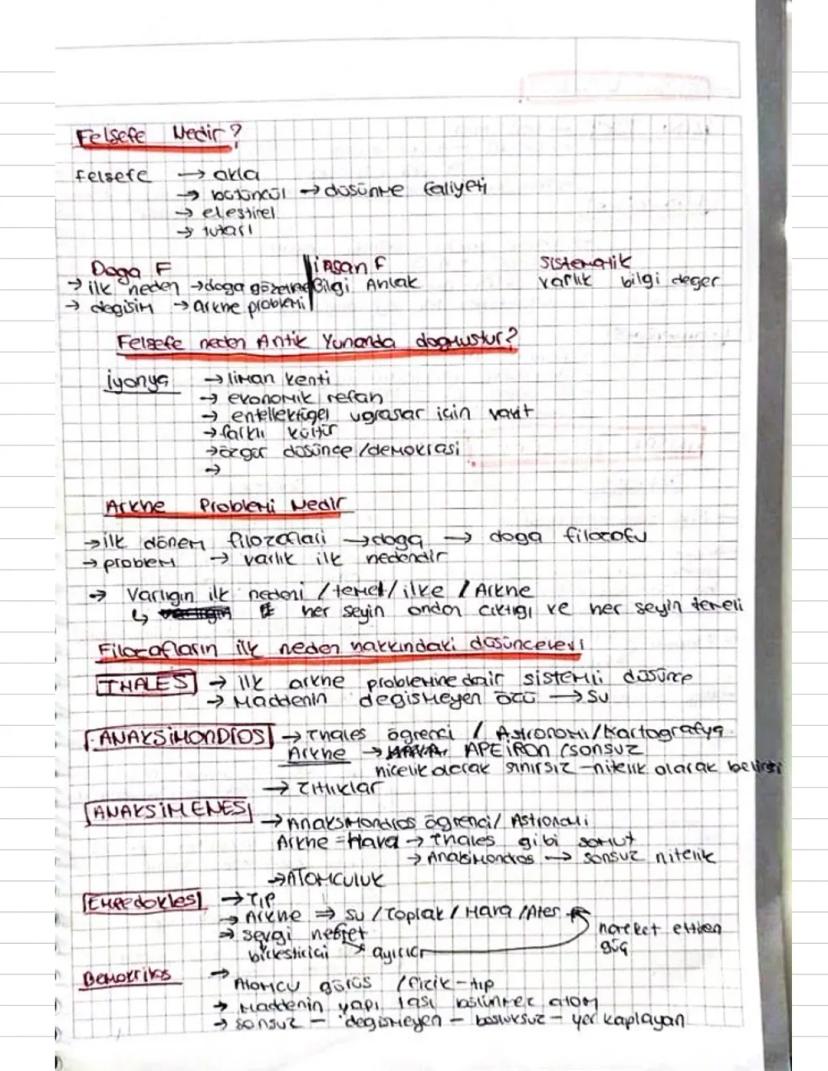 Felsefe Nedir?
Felsefe → akla
→ bütüncül → düsünme faliyeti
→ elestirel
→ tutarlı
Doga F
İnsan F
Sistematik
→ ilk neden → doga gözleme
Bilgi Ahlak
varlık bilgi deger
→ degisim → arkhe problemi
Felsefe neden Antik Yunanda dogmustur?
İyonya → liman kenti
→ ekonomik refah
→ entellektüel ugraslar icin vakit
→ farklı kültür
→ özgür düsünce / demokrasi
→
Arkhe Problemi Nedir
→ ilk dönem filozofları → doga → doga filozofu
→ problem → varlık ilk nedendir
→ Varlıgın ilk nedeni / temel / ilke / Arkhe
↳ her seyin ondan cıktıgı ve her seyin temeli
Filozofların ilk neden hakkındaki düsünceleri
THALES → ilk arkhe problemine dair sistemli düsünce
→ Maddenin degismeyen özü → Su
ANAKSİMONDROS → Thales ögrenci / Astronomi / Kartografya
Arkhe → APEİRON (sonsuz
nicelik olarak sınırsız - nitelik olarak belirsi
→ zıtlıklar
ANAKSİMENES → Anaksimondros ögrenci / Astronomi
Arkhe = Hava → Thales gibi somut
→ Anaksimondros → sonsuz nitelik
→ ATOMCULUK
Empedokles → TIP
→ Arkhe ⇒ su / Toprak / Hava / Ates
→ sevgi nefret
hareket ettiren
birlestirici
ayırıcı
güç
Demokritos → Atomcu görüs / fizik - tıp
→ Maddenin yapı tası bölünmez atom
→ sonsuz - degismeyen - bosluksuz - yer kaplayan